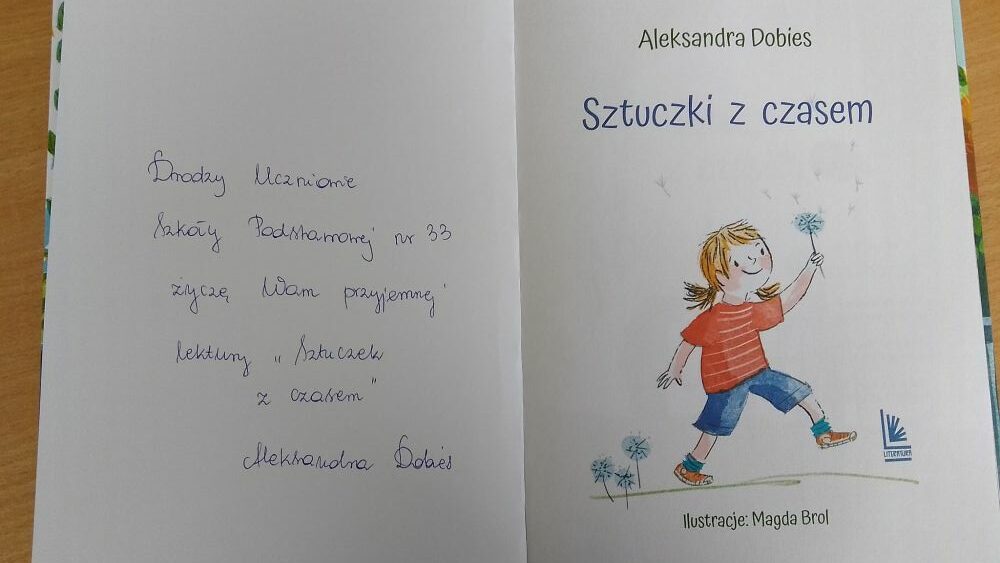 Drodzy Uczniowie
Szkoły Podstawowej nr 33
życzę Wam przyjemnej
lektury "Sztuczek
z czasem"
Aleksandra Dobies
Aleksandra Dobies
Sztuczki z czasem
LITERATURA
Ilustracje: Magda Brol